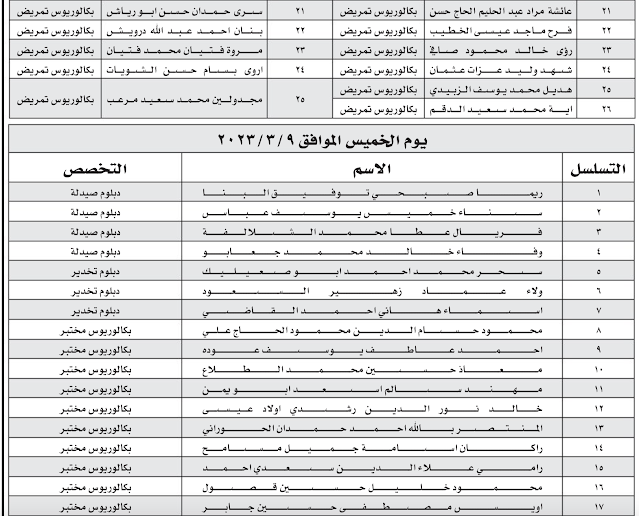 ٢١ عائشة مراد عبد الحليم الحاج حسن بكالوريوس تمريض ٢١ سرى حمدان حسن ابو رياش بكالوريوس تمريض
٢٢ فرح ماجد عيسى الخطيب بكالوريوس تمريض ٢٢ بنان احمد عبد الله درويش بكالوريوس تمريض
٢٣ رؤى خالد محمود صافي بكالوريوس تمريض ٢٣ مروة فتيان محمد فتيان بكالوريوس تمريض
٢٤ شهد وليد عزات عثمان بكالوريوس تمريض ٢٤ اروى بسام حسن الشويات بكالوريوس تمريض
٢٥ هديل محمد يوسف الزبيدي بكالوريوس تمريض ٢٥ مجدولين محمد سعيد مرعب بكالوريوس تمريض
٢٦ اية محمد سعيد الدقم بكالوريوس تمريض
يوم الخميس الموافق ٢٠٢٣/٣/٩
التسلسل الاسم التخصص
١ ريما صبحي توفيق البنا دبلوم صيدلة
٢ سناء خميس يوسف عباس دبلوم صيدلة
٣ فريال عطا محمد الشلالفة دبلوم صيدلة
٤ وفاء خالد محمد جعابو دبلوم صيدلة
٥ سحر محمد احمد ابو صعيليك دبلوم تخدير
٦ ولاء عماد زهير السعود دبلوم تخدير
٧ اسماء هاني احمد القاضي دبلوم تخدير
٨ محمود حسام الدين محمود الحاج علي بكالوريوس مختبر
٩ احمد عاطف يوسف عوده بكالوريوس مختبر
١٠ معاذ حسين محمد الطلاع بكالوريوس مختبر
١١ مهند سالم اسعد ابو يمن بكالوريوس مختبر
١٢ خالد نور الدين رشدي اولاد عيسى بكالوريوس مختبر
١٣ المنتصر بالله احمد حمدان الحوراني بكالوريوس مختبر
١٤ راكان اسامة جميل مسامح بكالوريوس مختبر
١٥ رامي علاء الدين سعدي احمد بكالوريوس مختبر
١٦ محمود خليل حسين قصول بكالوريوس مختبر
١٧ اويس مصطفى حسين جابر بكالوريوس مختبر